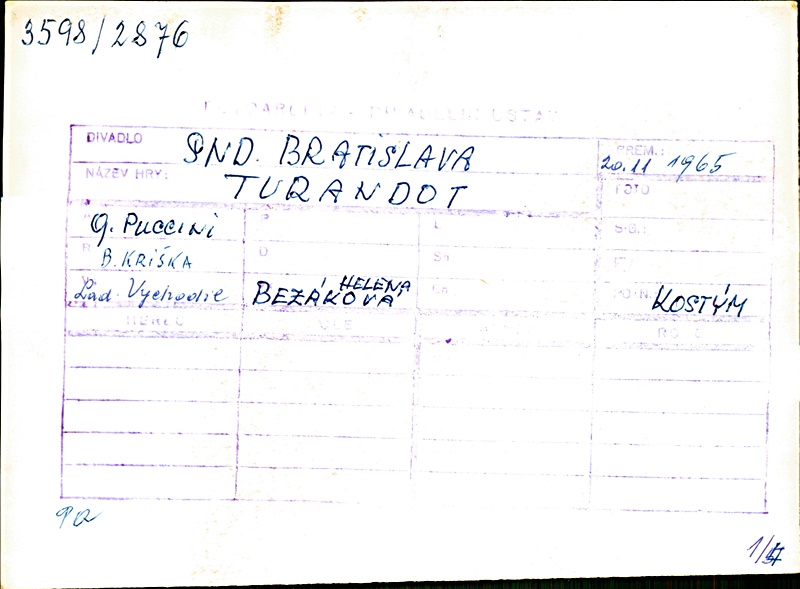 3598/2876
DIVADELNÍ ÚSTAV
DIVADLO SND. BRATISLAVA PREM.: 20.11 1965
NÁZEV HRY: TURANDOT FOTO
G. PUCCINI P L S.G.:
B. KRIŠKA D Sn
Lad. Vychodil BEZÁKOVÁ HELENA KOSTÝM
HEREC
1/